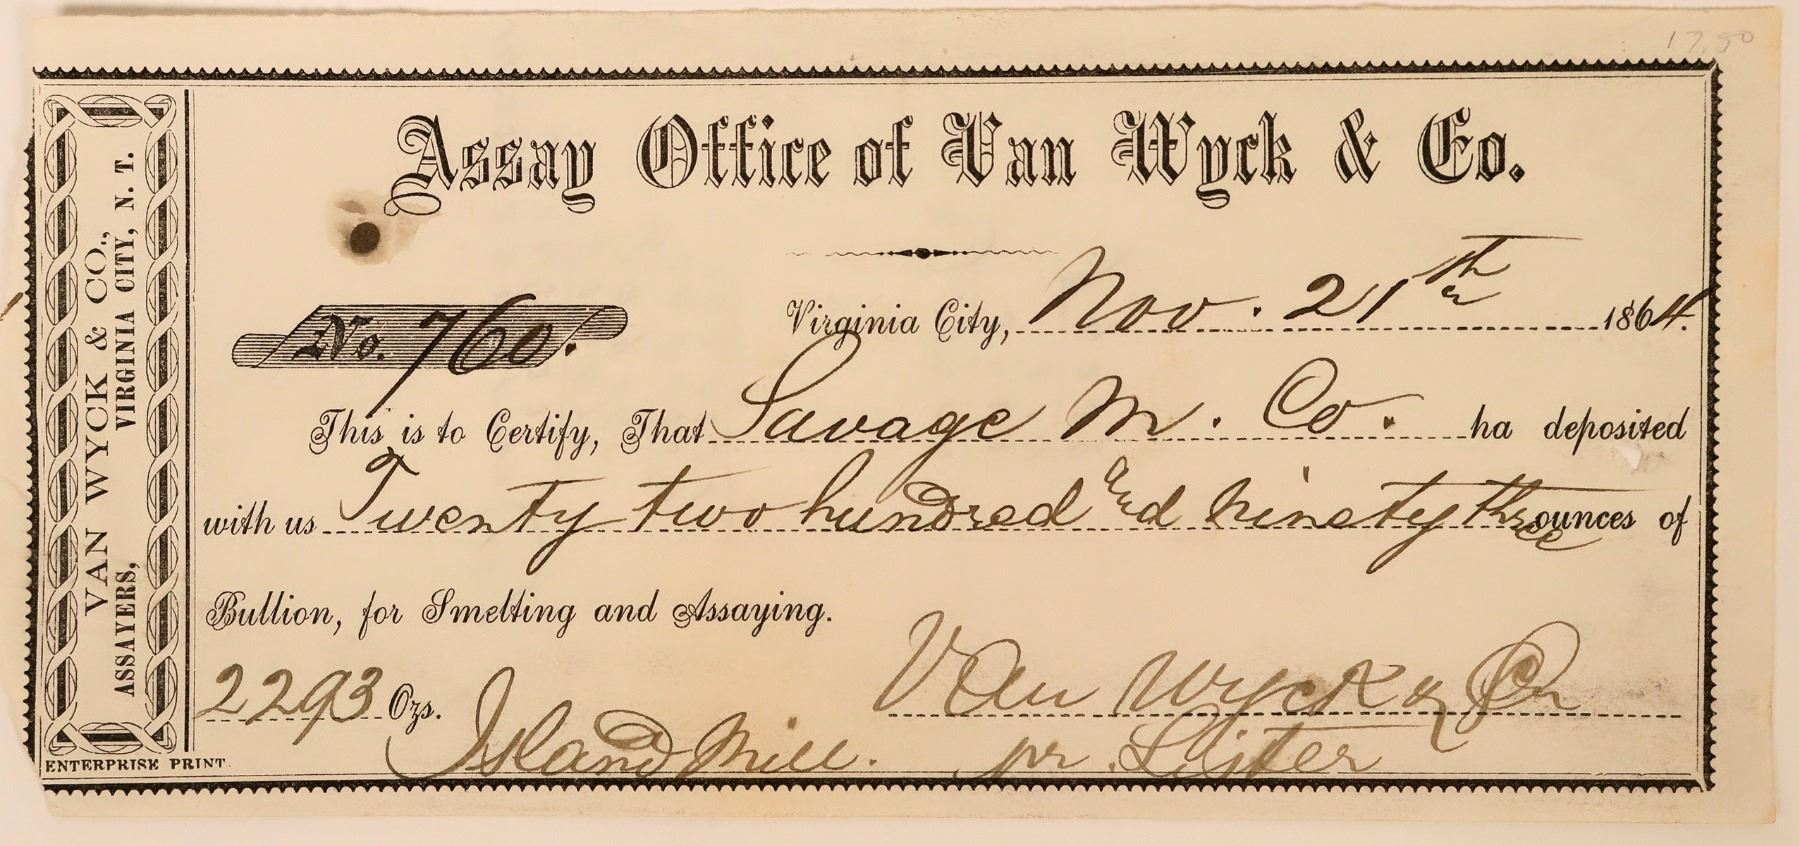 17.50
Assay Office of Van Wyck & Co.
VAN WYCK & CO.,
ASSAYERS, VIRGINIA CITY, N. T.
No. 760.
Virginia City, Nov. 21th 1864.
This is to Certify, That Savage M. Co. ha deposited
with us Twenty two hundred and Ninety three ounces of
Bullion, for Smelting and Assaying.
2293 Ozs.
Van Wyck & Co
Island Mill. pr. Lister
ENTERPRISE PRINT